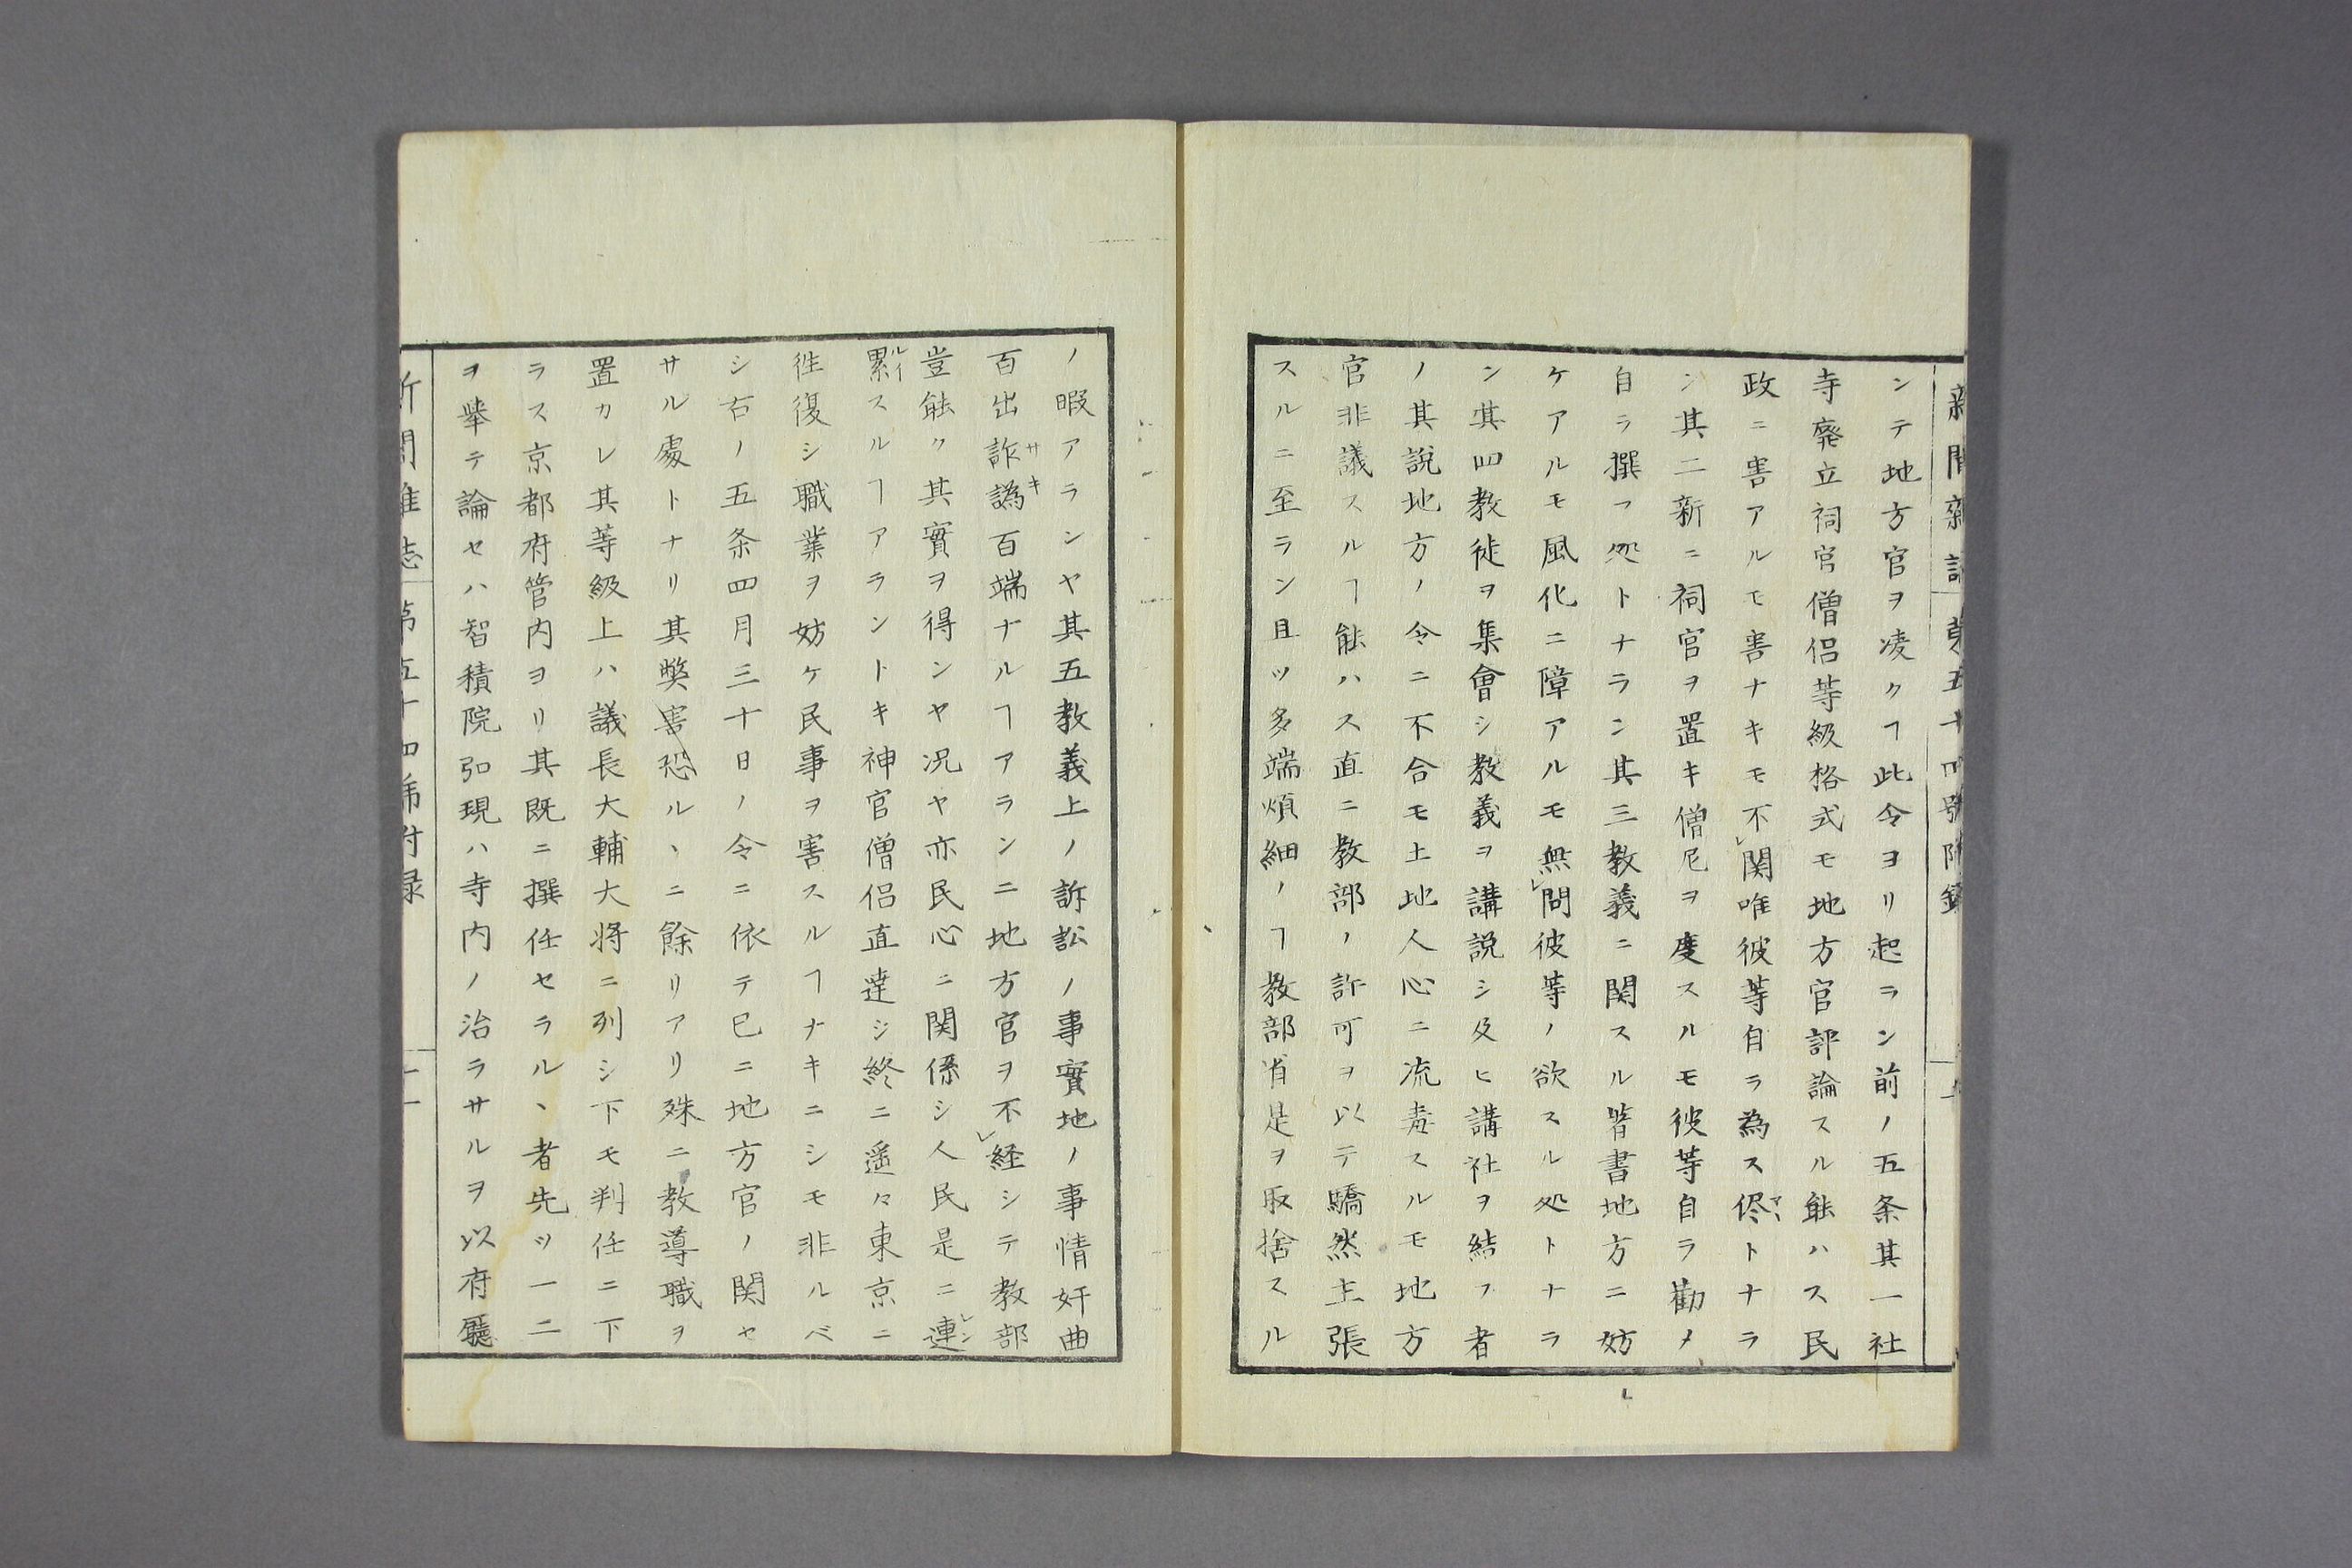 新聞雑誌 第五十四號附録
ンテ地方官ヲ凌クヿ此令ヨリ起ラン前ノ五条其一社
寺廃立祠官僧侶等級格式モ地方官評論スル能ハス民
政ニ害アルモ害ナキモ不レ関唯彼等自ラ為ス侭マヽトナラ
ン其二新ニ祠官ヲ置キ僧尼ヲ度スルモ彼等自ラ勸メ
自ラ撰フ処トナラン其三教義ニ関スル皆書地方ニ妨
ケアルモ風化ニ障アルモ無レ問彼等ノ欲スル処トナラ
ン其四教徒ヲ集會シ教義ヲ講説シ及ヒ講社ヲ結フ者
ノ其説地方ノ令ニ不合モ土地人心ニ流毒スルモ地方
官非議スルヿ能ハス直ニ教部ノ許可ヲ以テ驕然主張
スルニ至ラン且ツ多端煩細ノヿ教部省是ヲ取捨スル
ノ暇アランヤ其五教義上ノ訴訟ノ事實地ノ事情奸曲
百出詐サ譌キ百端ナルヿアランニ地方官ヲ不レ経シテ教部
豈能ク其實ヲ得ンヤ况ヤ亦民心ニ関係シ人民是ニ連レン
累ルイスルヿアラントキ神官僧侶直達シ終ニ遥々東京ニ
徃復シ職業ヲ妨ケ民事ヲ害スルヿナキニシモ非ルベ
シ右ノ五条四月三十日ノ令ニ依テ已ニ地方官ノ関セ
サル處トナリ其獘害恐ルヽニ餘リアリ殊ニ教導職ヲ
置カレ其等級上ハ議長大輔大将ニ列シ下モ判任ニ下
ラス京都府管内ヨリ其既ニ撰任セラルヽ者先ツ一二
ヲ擧テ論セハ智積院弘現ハ寺内ノ治ラサルヲ以府廳
新聞雑誌 第五十四號附録